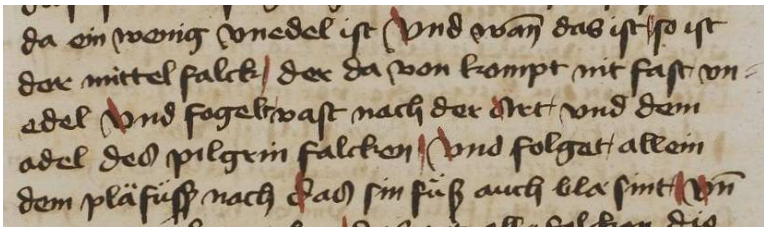 da ein wenig vnedel ist Vnd wan̄ das ist so ist
der mittel falck / der da von kompt nit fast vn=
edel Vnd fogelt vast nach der Art vnd dem
adel des pilgrin falcken / Vnd folget allein
dem pläfüß nach das sin füß auch bla sint Vn̄